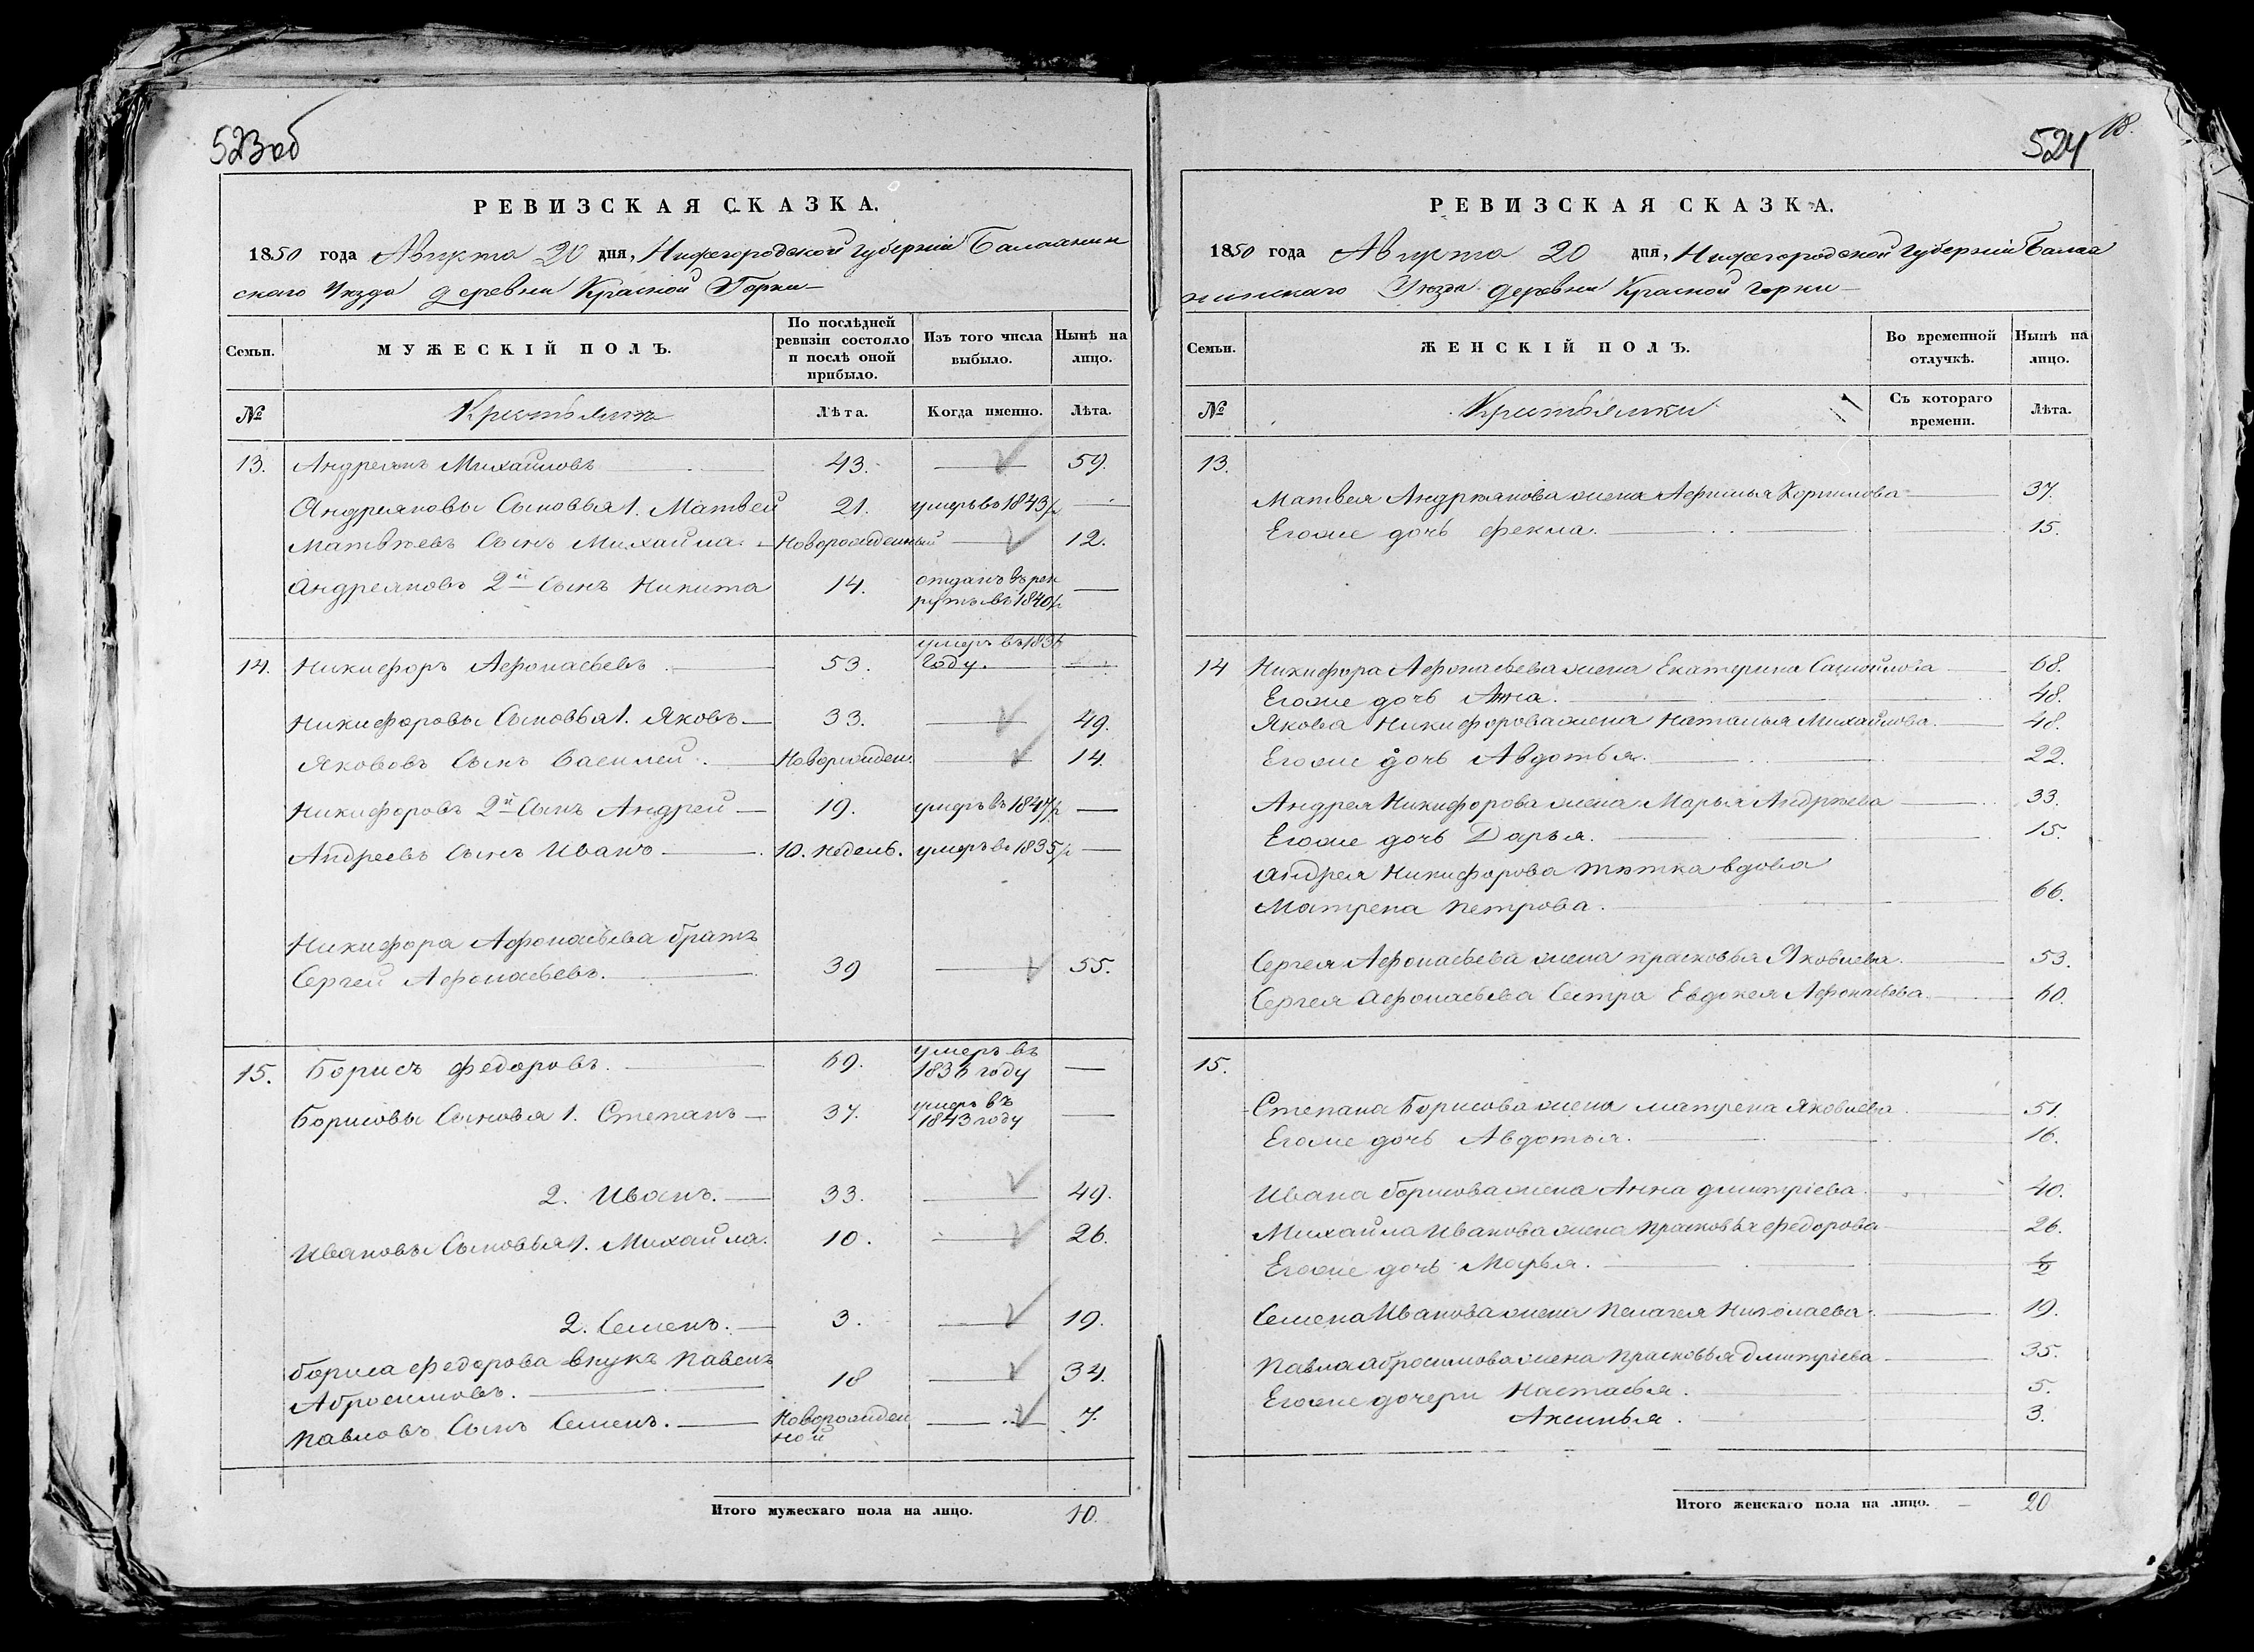 523об
РЕВИЗСКАЯ СКАЗКА.
1850 года Августа 20 дня, Нижегородской Губерніи Балахнин
скаго Уѣзда деревни Красной Горки
Семьи. МУЖЕСКІЙ ПОЛЪ. По послѣдней ревизіи состояло и послѣ оной прибыло. Изъ того числа выбыло. Нынѣ на лицо.
№ Крестьянъ Лѣта. Когда именно. Лѣта.
13. Андреянъ Михайловъ 43. 59.
Андреяновы Сыновья 1. Матвей 21. умеръ въ 1843 г
Матвѣевъ Сынъ Михайла. Новорожденный 12.
Андреяновъ 2й Сынъ Никита 14. отданъ въ рек
руты въ 1840 г
14. Никифоръ Афонасьевъ 53. умеръ въ 1836
году.
Никифоровы Сыновья 1. Яковъ 33. 49.
Яковов Сынъ Василей. Новорожден. 14.
Никифоровъ 2й Сынъ Андрей 19. умеръ въ 1847 г
Андреевъ Сынъ Иванъ 10. недель. умеръ въ 1835 г
Никифора Афонасьева братъ
Сергей Афонасьевъ. 39 55.
15. Борисъ Федоровъ. 69. умеръ въ
1836 году
Борисовы Сыновья 1. Степанъ 37. умеръ въ
1843 году
2. Иванъ. 33. 49.
Ивановы Сыновья 1. Михайла. 10. 26.
2. Семенъ. 3. 19.
Бориса Федорова внукъ Павелъ
Абросимовъ. 18 34.
Павловъ Сынъ Семенъ. Новорожден
ной 7.
Итого мужескаго пола на лицо. 10.
524 18.
РЕВИЗСКАЯ СКАЗКА.
1850 года Августа 20 дня, Нижегородской Губерніи Балах
нинскаго Уѣзда деревни Красной Горки
Семьи. ЖЕНСКІЙ ПОЛЪ. Во временной отлучкѣ. Нынѣ на лицо.
№ Крестьянки Съ котораго времени. Лѣта.
13.
Матвея Андреянова жена Афимья Корнилова 37.
Егоже дочь Фекла. 15.
14 Никифора Афонасьева жена Екатерина Самойлова 68.
Егоже дочь Анна. 48.
Якова Никифорова жена Наталья Михайлова. 48.
Егоже дочь Авдотья. 22.
Андрея Никифорова жена Марья Андрѣева 33.
Егоже дочь Дарья. 15.
Андрея Никифорова тѣтка вдова
Матрена Петрова. 66.
Сергея Афонасьева жена Прасковья Яковлева. 53.
Сергея Афонасьева Сестра Евдокея Афонасьева. 60.
15.
Степана Борисова жена Матрена Яковлева. 51.
Егоже дочь Авдотья. 16.
Ивана Борисова жена Анна Дмитріева. 40.
Михайла Иванова жена Прасковья Федорова 26.
Егоже дочь Марья. ½
Семена Иванова жена Пелагея Николаева. 19.
Павла Абросимова жена Прасковья Дмитріева 35.
Егоже дочери Настасья. 5.
Аксинья. 3.
Итого женскаго пола на лицо. 20